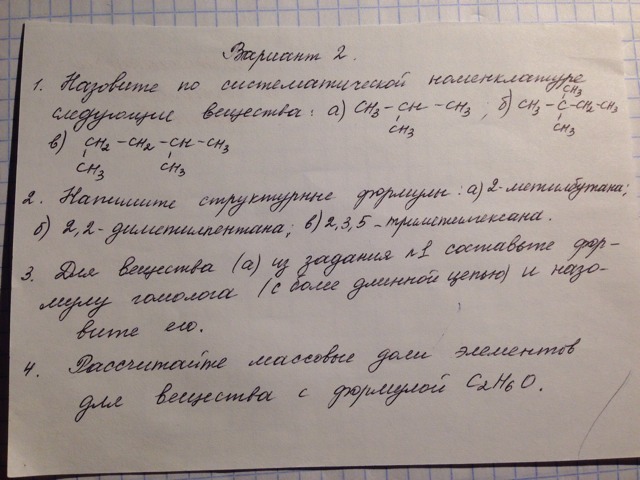 Вариант 2.
1. Назовите по систематической номенклатуре
CH3
следующие вещества: а) CH3 - CH - CH3 ; б) CH3 - C - CH2 - CH3
CH3 CH3
в) CH2 - CH2 - CH - CH3
CH3 CH3
2. Напишите структурные формулы: а) 2-метилбутана;
б) 2,2-диметилпентана; в) 2,3,5-триметилгексана.
3. Для вещества (а) из задания №1 составьте фор-
мулу гомолога (с более длинной цепью) и назо-
вите его.
4. Рассчитайте массовые доли элементов
для вещества с формулой C2H6O.